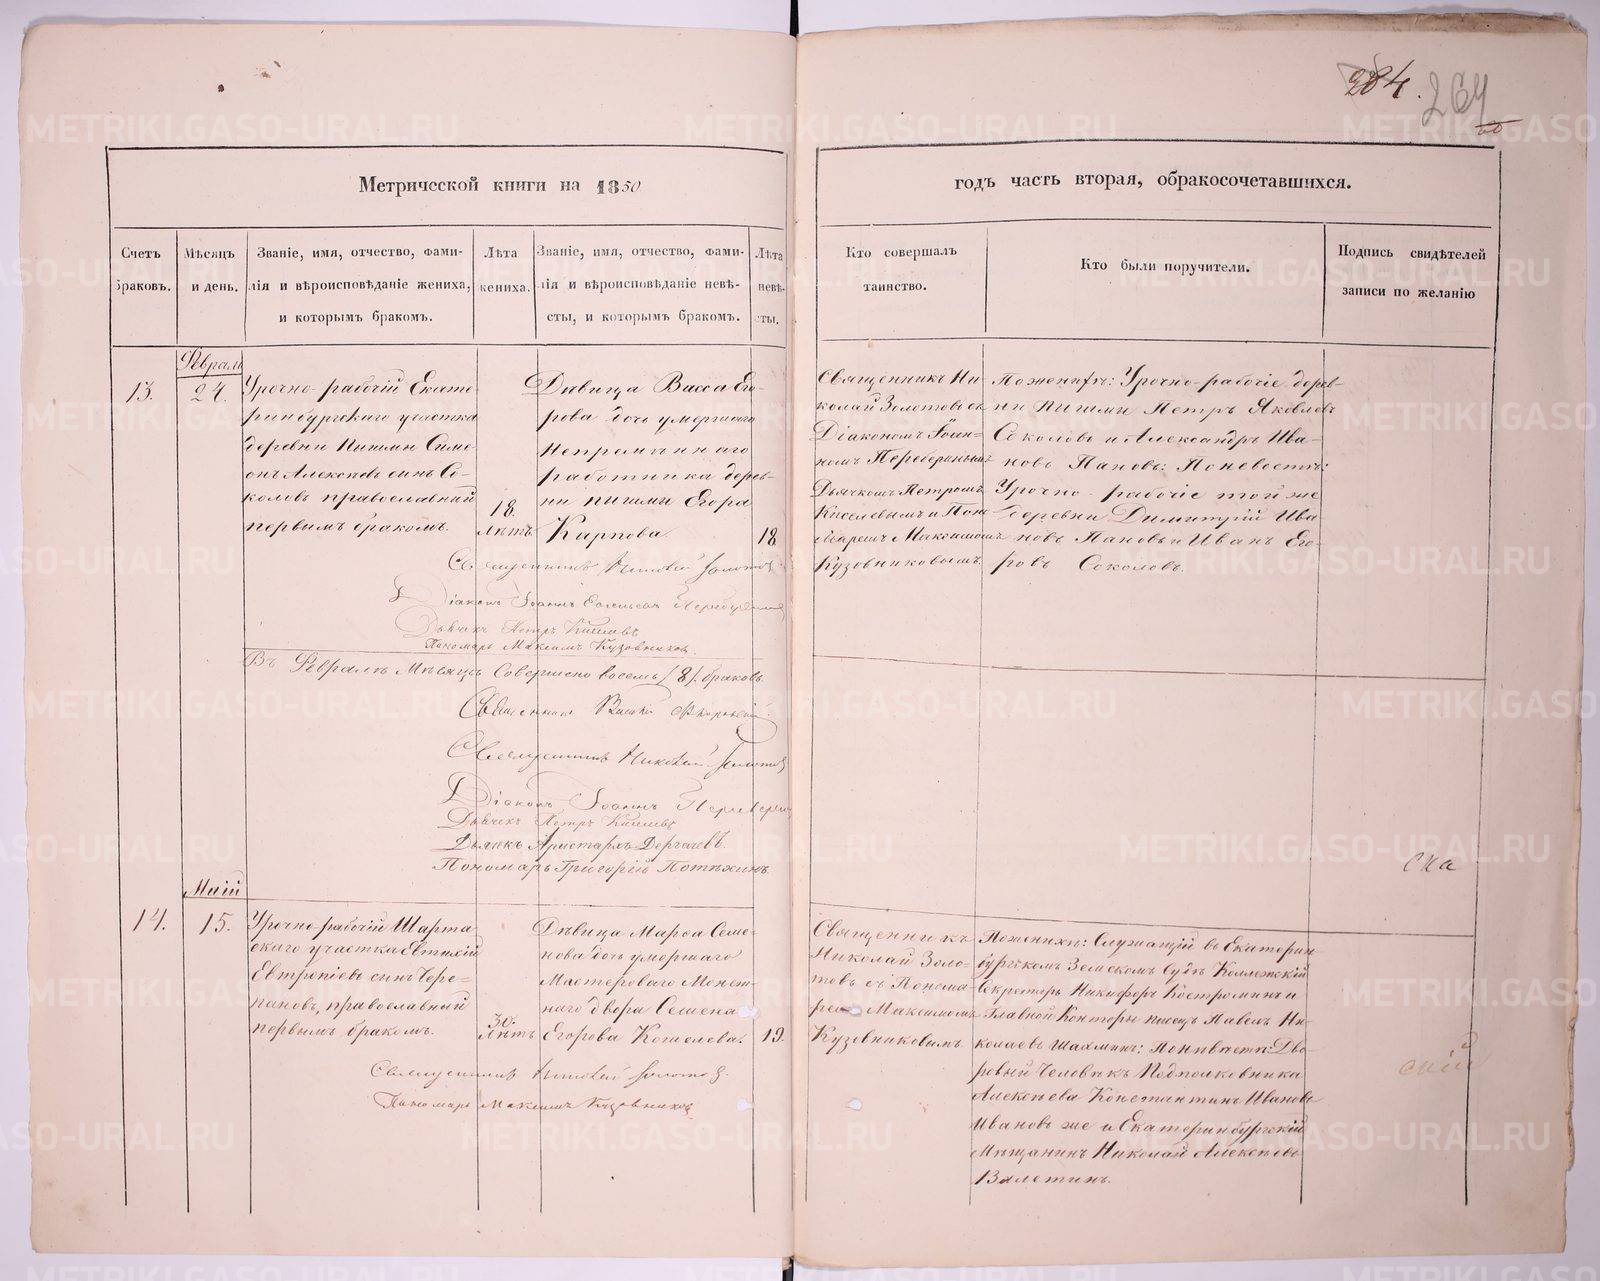 284.
264
об
Метрической книги на 1850
годъ часть вторая, обракосочетавшихся.
Счетъ браковъ.
Мѣсяцъ и день.
Званіе, имя, отчество, фами-
лія и вѣроисповѣданіе жениха,
и которымъ бракомъ.
Лѣта
жениха.
Званіе, имя, отчество, фами-
лія и вѣроисповѣданіе невѣ-
сты, и которымъ бракомъ.
Лѣта
невѣ-
сты.
Кто совершалъ
таинство.
Кто были поручители.
Подпись свидѣтелей
записи по желанію
13.
Февраля
24.
Урочно-рабочій Екате
ринбургскаго участка
деревни Пышмы Симе
онъ Алексѣевъ сынъ Со
коловъ православный
первымъ бракомъ.
18.
лѣтъ
Дѣвица Васса Его-
рова дочь умершаго
Непремѣннаго
работника дерев-
ни Пышмы Егора
Карпова
18
Священникъ Ни
колай Золотовъ съ
Діакономъ Іоан-
номъ
Дьячкомъ Петромъ
Киселевымъ и Поно
маремъ Максимомъ
Кузовниковымъ
По женихѣ: Урочно-рабочіе дерев-
ни Пышмы Петръ Яковлевъ
Соколовъ и Александръ Ива-
новъ Пановъ: По невѣстѣ:
Урочно-рабочіе той же
деревни Димитрій Ива
новъ Пановъ и Иванъ Его-
ровъ Соколовъ.
Священникъ Николай Золотовъ
Діаконъ Іоаннъ
Дьячекъ Петръ Киселевъ
Пономарь Максимъ Кузовниковъ.
Въ Февралѣ Мѣсяцѣ Совершено восемь /8/ браковъ.
Священникъ
Священникъ Николай Золотовъ
Діаконъ Іоаннъ
Дьячекъ Петръ Киселевъ
Дьячекъ Аристархъ Дергачевъ.
Пономарь Григорій Потѣхинъ
ска
14.
Маій
15.
Урочно-рабочій Шарта
скаго участка Евтихій
Евтропіевъ сынъ Чере-
пановъ, православный
первымъ бракомъ.
30.
лѣтъ
Дѣвица Марѳа Семе-
нова дочь умершаго
Мастероваго Монет-
наго двора Семена
Егорова Кошелева.
19.
Священникъ
Николай Золо-
товъ съ Понома-
ремъ Максимомъ
Кузовниковымъ.
По женихѣ: Служащій въ Екатерин-
бургскомъ Земскомъ Судѣ Коллежскій
Секретарь Никифоръ Костроминъ и
Главной Конторы писецъ Павелъ Ни-
колаевъ Шахминъ: По невѣстѣ: Дво-
ровый Человѣкъ Подполковника
Алексѣева Константинъ Ивановъ
Ивановъ же и Екатеринбургскій
Мѣщанинъ Николай Алексѣевъ
Валетинъ.
Священникъ Николай Золотовъ.
Пономарь Максимъ Кузовниковъ
скій
METRIKI.GASO-URAL.RU